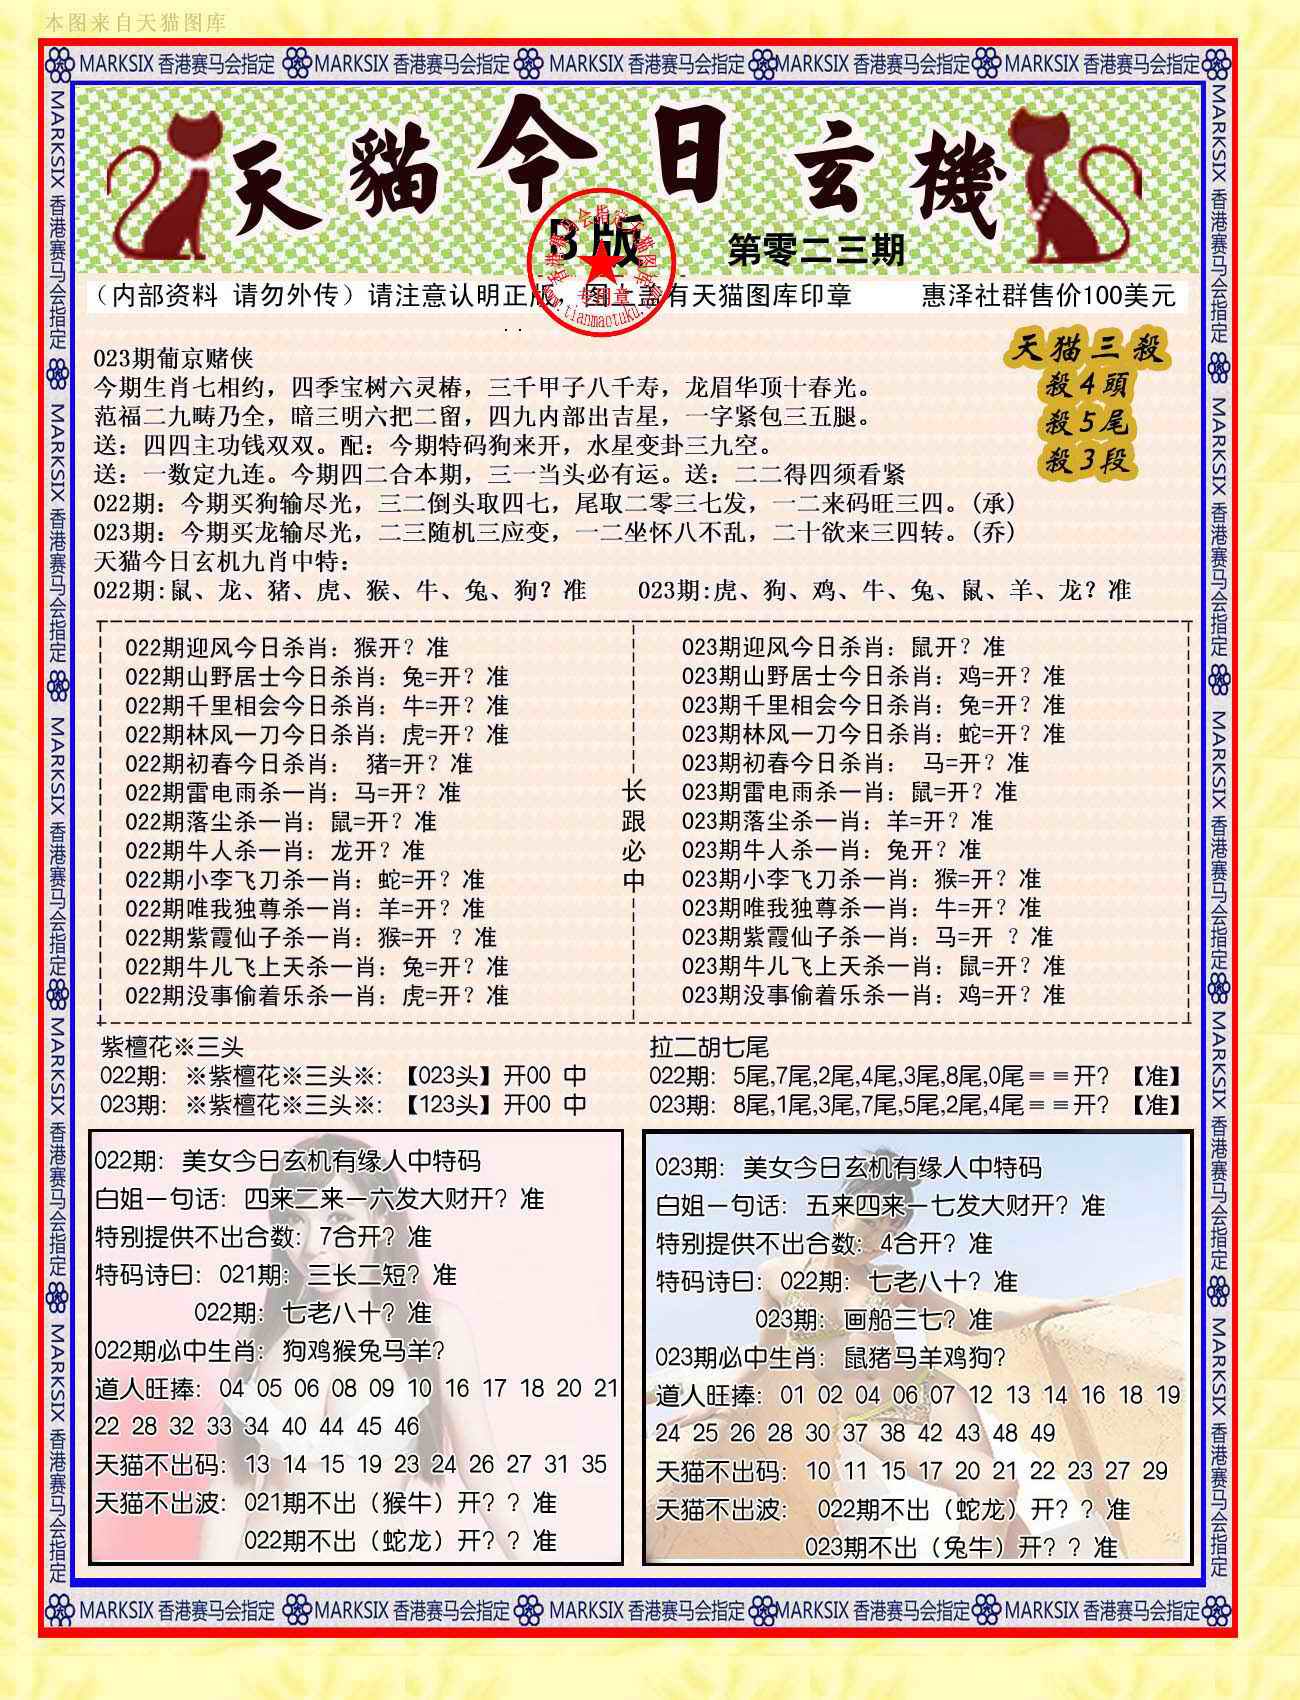 本图来自天猫图库
MARKSIX 香港赛马会指定 MARKSIX 香港赛马会指定 MARKSIX 香港赛马会指定 MARKSIX 香港赛马会指定 MARKSIX 香港赛马会指定
MARKSIX 香港赛马会指定 MARKSIX 香港赛马会指定 MARKSIX 香港赛马会指定 MARKSIX 香港赛马会指定 MARKSIX 香港赛马会指定
天貓今日玄機
B版
第零二三期
香港赛马会指定天猫图库
专用章
www.tianmaotuku.com
（内部资料 请勿外传）请注意认明正版，图上盖有天猫图库印章 惠泽社群售价100美元
天猫三殺
殺4頭
殺5尾
殺3段
023期葡京赌侠
今期生肖七相约，四季宝树六灵椿，三千甲子八千寿，龙眉华顶十春光。
范福二九畴乃全，暗三明六把二留，四九内部出吉星，一字紧包三五腿。
送：四四主功钱双双。配：今期特码狗来开，水星变卦三九空。
送：一数定九连。今期四二合本期，三一当头必有运。送：二二得四须看紧
022期：今期买狗输尽光，三二倒头取四七，尾取二零三七发，一二来码旺三四。(承)
023期：今期买龙输尽光，二三随机三应变，一二坐怀八不乱，二十欲来三四转。(乔)
天猫今日玄机九肖中特：
022期:鼠、龙、猪、虎、猴、牛、兔、狗？准 023期:虎、狗、鸡、牛、兔、鼠、羊、龙？准
022期迎风今日杀肖：猴开？准
022期山野居士今日杀肖：兔=开？准
022期千里相会今日杀肖：牛=开？准
022期林风一刀今日杀肖：虎=开？准
022期初春今日杀肖： 猪=开？准
022期雷电雨杀一肖：马=开？准
022期落尘杀一肖：鼠=开？准
022期牛人杀一肖：龙开？准
022期小李飞刀杀一肖：蛇=开？准
022期唯我独尊杀一肖：羊=开？准
022期紫霞仙子杀一肖：猴=开 ？准
022期牛儿飞上天杀一肖：兔=开？准
022期没事偷着乐杀一肖：虎=开？准
长跟必中
023期迎风今日杀肖：鼠开？准
023期山野居士今日杀肖：鸡=开？准
023期千里相会今日杀肖：兔=开？准
023期林风一刀今日杀肖：蛇=开？准
023期初春今日杀肖： 马=开？准
023期雷电雨杀一肖：鼠=开？准
023期落尘杀一肖：羊=开？准
023期牛人杀一肖：兔开？准
023期小李飞刀杀一肖：猴=开？准
023期唯我独尊杀一肖：牛=开？准
023期紫霞仙子杀一肖：马=开 ？准
023期牛儿飞上天杀一肖：鼠=开？准
023期没事偷着乐杀一肖：鸡=开？准
紫檀花※三头
022期：※紫檀花※三头※:【023头】开00 中
023期：※紫檀花※三头※:【123头】开00 中
拉二胡七尾
022期：5尾,7尾,2尾,4尾,3尾,8尾,0尾＝＝开？【准】
023期：8尾,1尾,3尾,7尾,5尾,2尾,4尾＝＝开？【准】
022期：美女今日玄机有缘人中特码
白姐一句话：四来二来一六发大财开？准
特别提供不出合数：7合开？准
特码诗曰：021期：三长二短？准
022期：七老八十？准
022期必中生肖：狗鸡猴兔马羊？
道人旺捧：04 05 06 08 09 10 16 17 18 20 21
22 28 32 33 34 40 44 45 46
天猫不出码：13 14 15 19 23 24 26 27 31 35
天猫不出波：021期不出（猴牛）开？？准
022期不出（蛇龙）开？？准
023期：美女今日玄机有缘人中特码
白姐一句话：五来四来一七发大财开？准
特别提供不出合数：4合开？准
特码诗曰：022期：七老八十？准
023期：画船三七？准
023期必中生肖：鼠猪马羊鸡狗？
道人旺捧：01 02 04 06 07 12 13 14 16 18 19
24 25 26 28 30 37 38 42 43 48 49
天猫不出码：10 11 15 17 20 21 22 23 27 29
天猫不出波： 022期不出（蛇龙）开？？准
023期不出（兔牛）开？？准
MARKSIX 香港赛马会指定 MARKSIX 香港赛马会指定 MARKSIX 香港赛马会指定 MARKSIX 香港赛马会指定 MARKSIX 香港赛马会指定
MARKSIX 香港赛马会指定 MARKSIX 香港赛马会指定 MARKSIX 香港赛马会指定 MARKSIX 香港赛马会指定 MARKSIX 香港赛马会指定